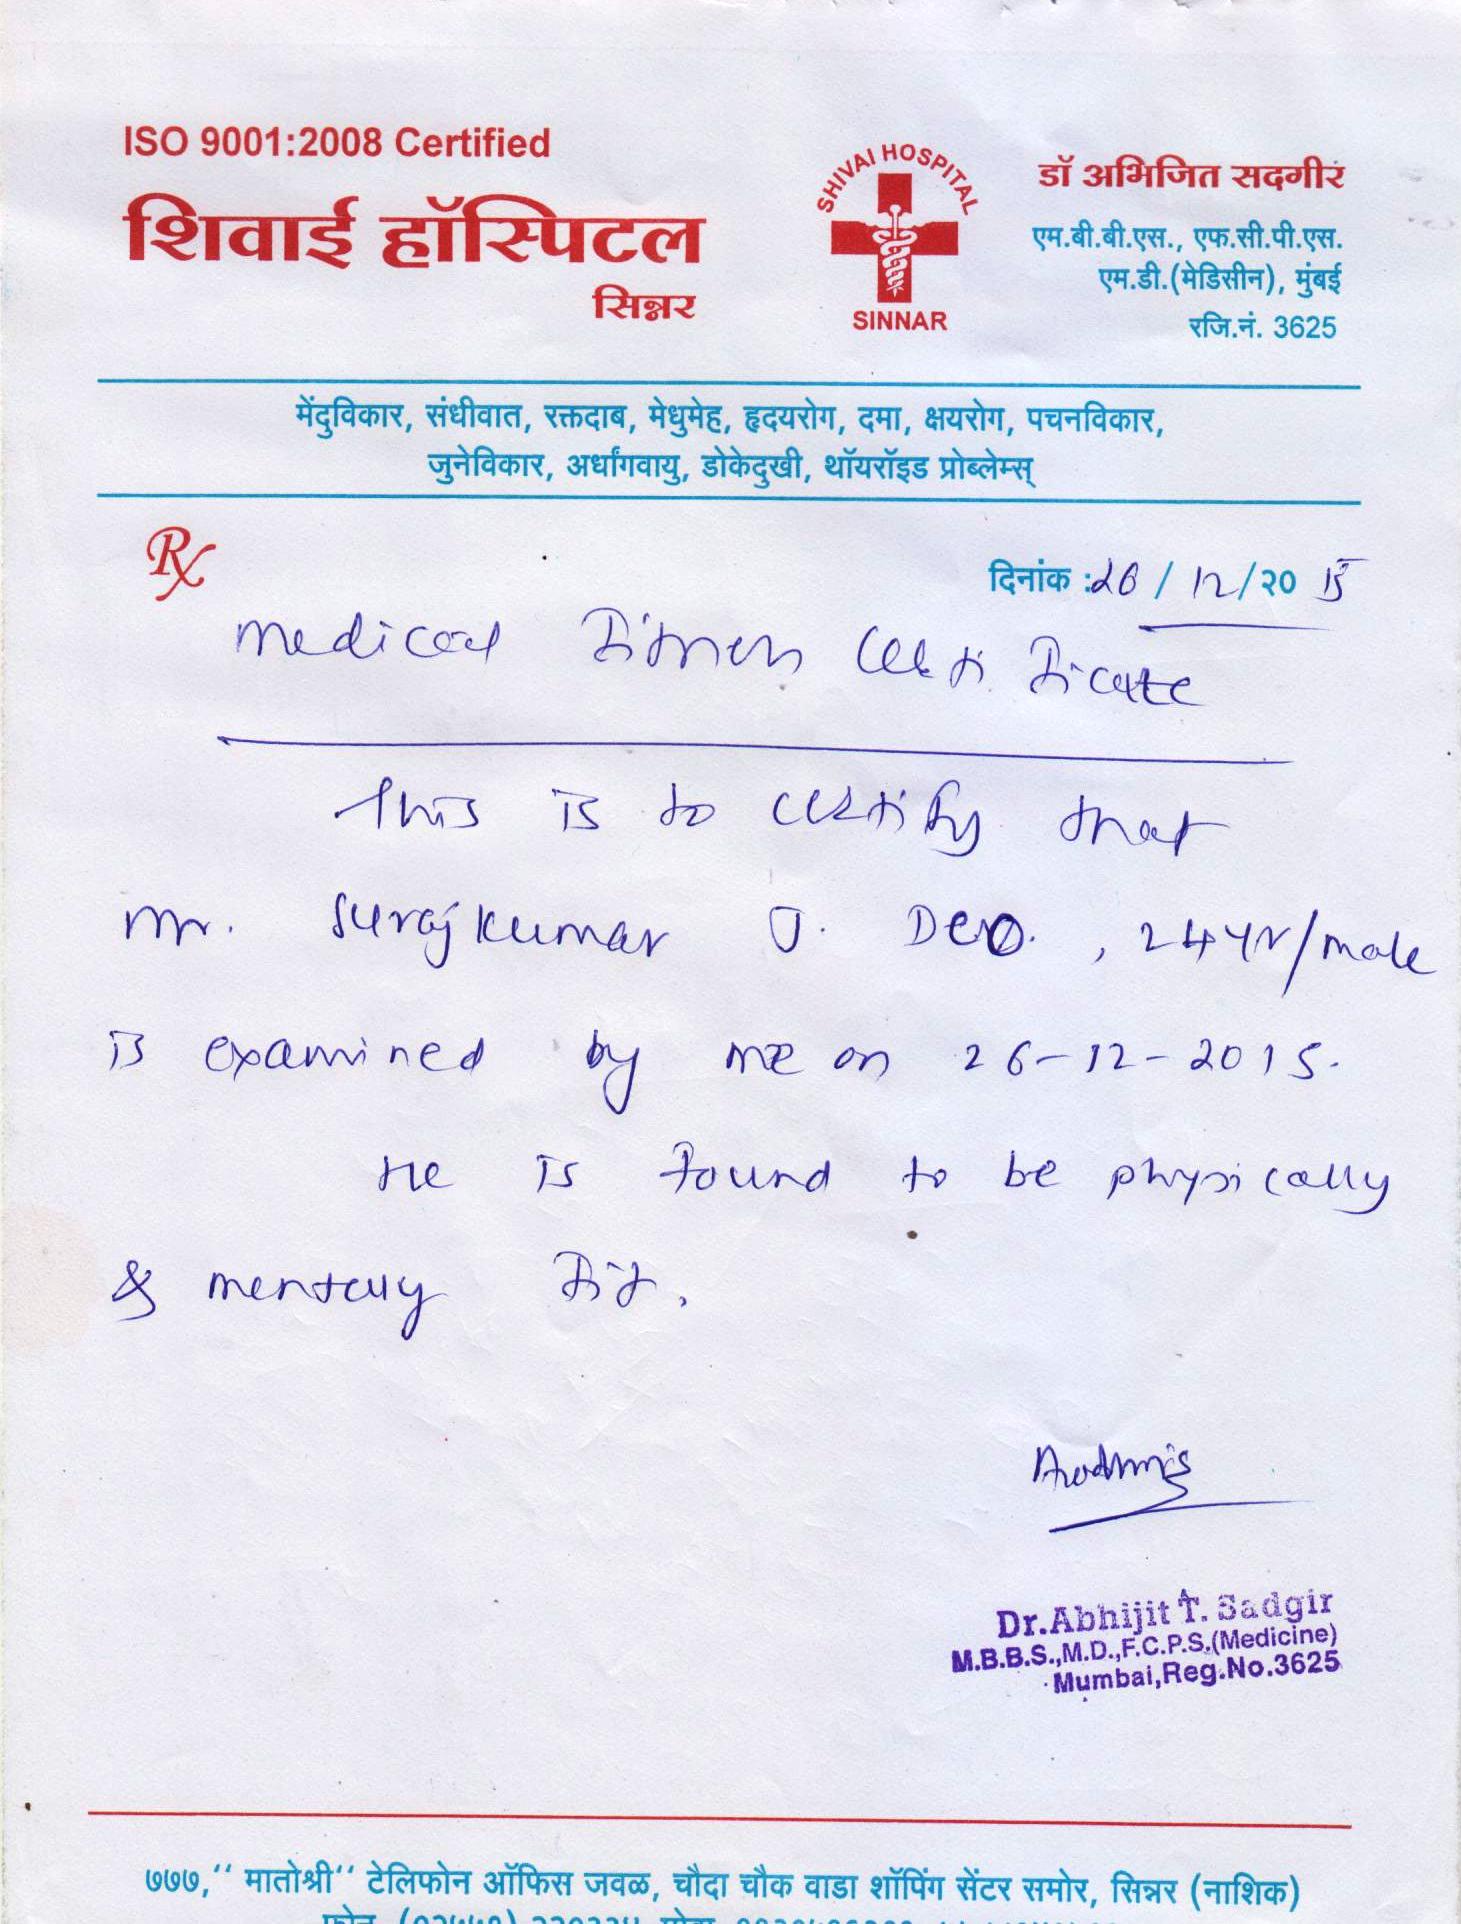 ISO 9001:2008 Certified
शिवाई हॉस्पिटल
सिन्नर
SHIVAI HOSPITAL
SINNAR
डॉ अभिजित सदगीर
एम.बी.बी.एस., एफ.सी.पी.एस.
एम.डी.(मेडिसीन), मुंबई
रजि.नं. 3625
मेंदुविकार, संधीवात, रक्तदाब, मेधुमेह, हृदयरोग, दमा, क्षयरोग, पचनविकार,
जुनेविकार, अर्धांगवायु, डोकेदुखी, थॉयरॉइड प्रोब्लेम्स्
Rx
दिनांक :26/12/२० 15
Medical Fitness Certificate
This is to certify that
Mr. Surajkumar J. Deo. , 24yr/male
is examined by me on 26-12-2015.
He is found to be physically
& mentally fit.
Dr.Abhijit T. Sadgir
M.B.B.S.,M.D.,F.C.P.S.(Medicine)
Mumbai,Reg.No.3625
७७७,‘‘ मातोश्री‘‘ टेलिफोन ऑफिस जवळ, चौदा चौक वाडा शॉपिंग सेंटर समोर, सिन्नर (नाशिक)